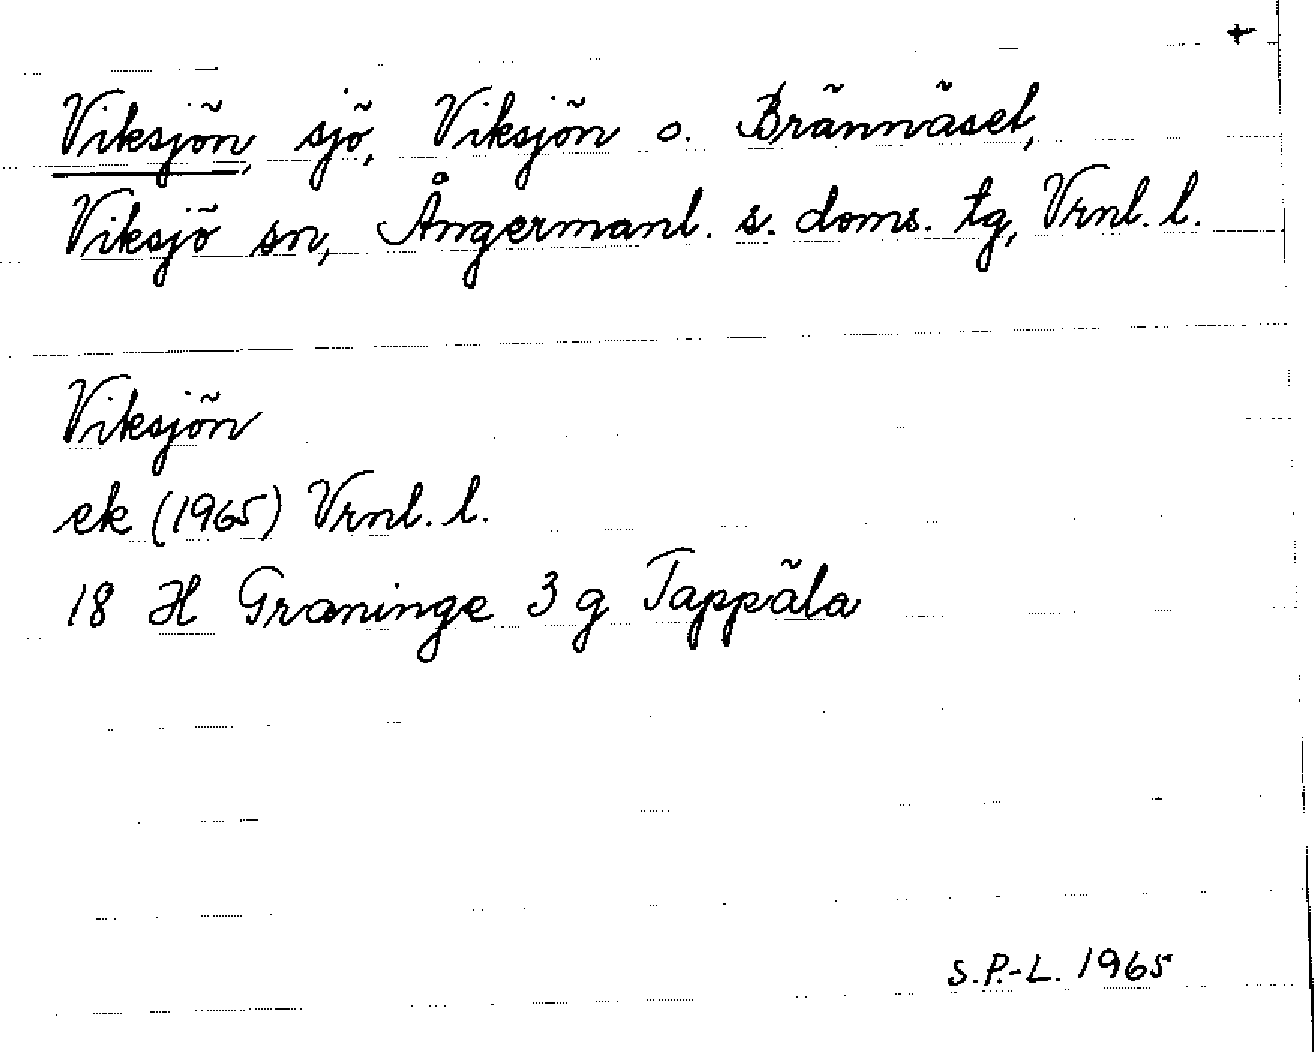 +
Viksjön, sjö, Viksjön o. Brännäset,
Viksjö sn, Ångermanl. s. doms. tg, Vrnl. l.
Viksjön
ek (1965) Vrnl. l.
18 H Graninge 3 g Tappäla
S.P.-L. 1965